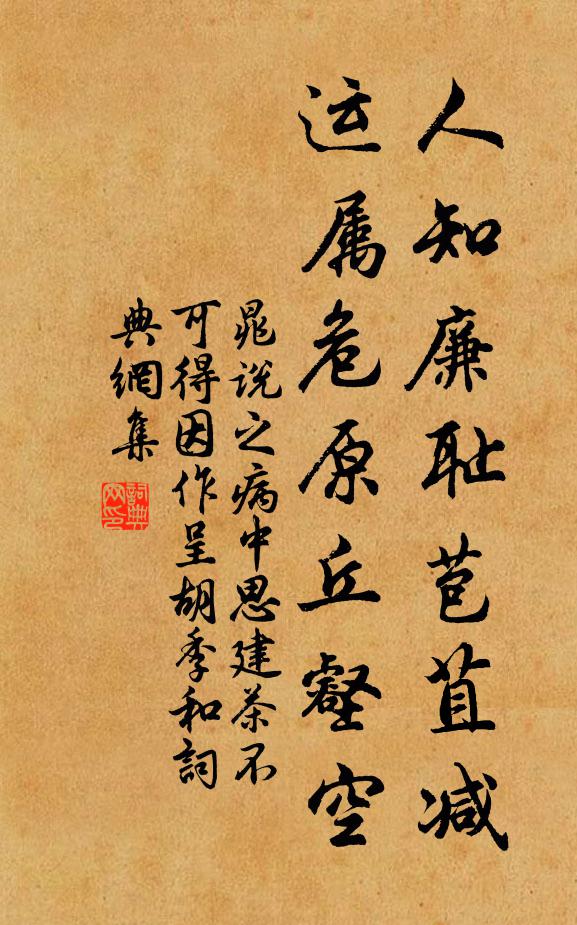 人知廉耻苞苴减
运属危原丘壑空
晁说之病中思建茶不
可得因作呈胡季和词
典網集
詞典
网印